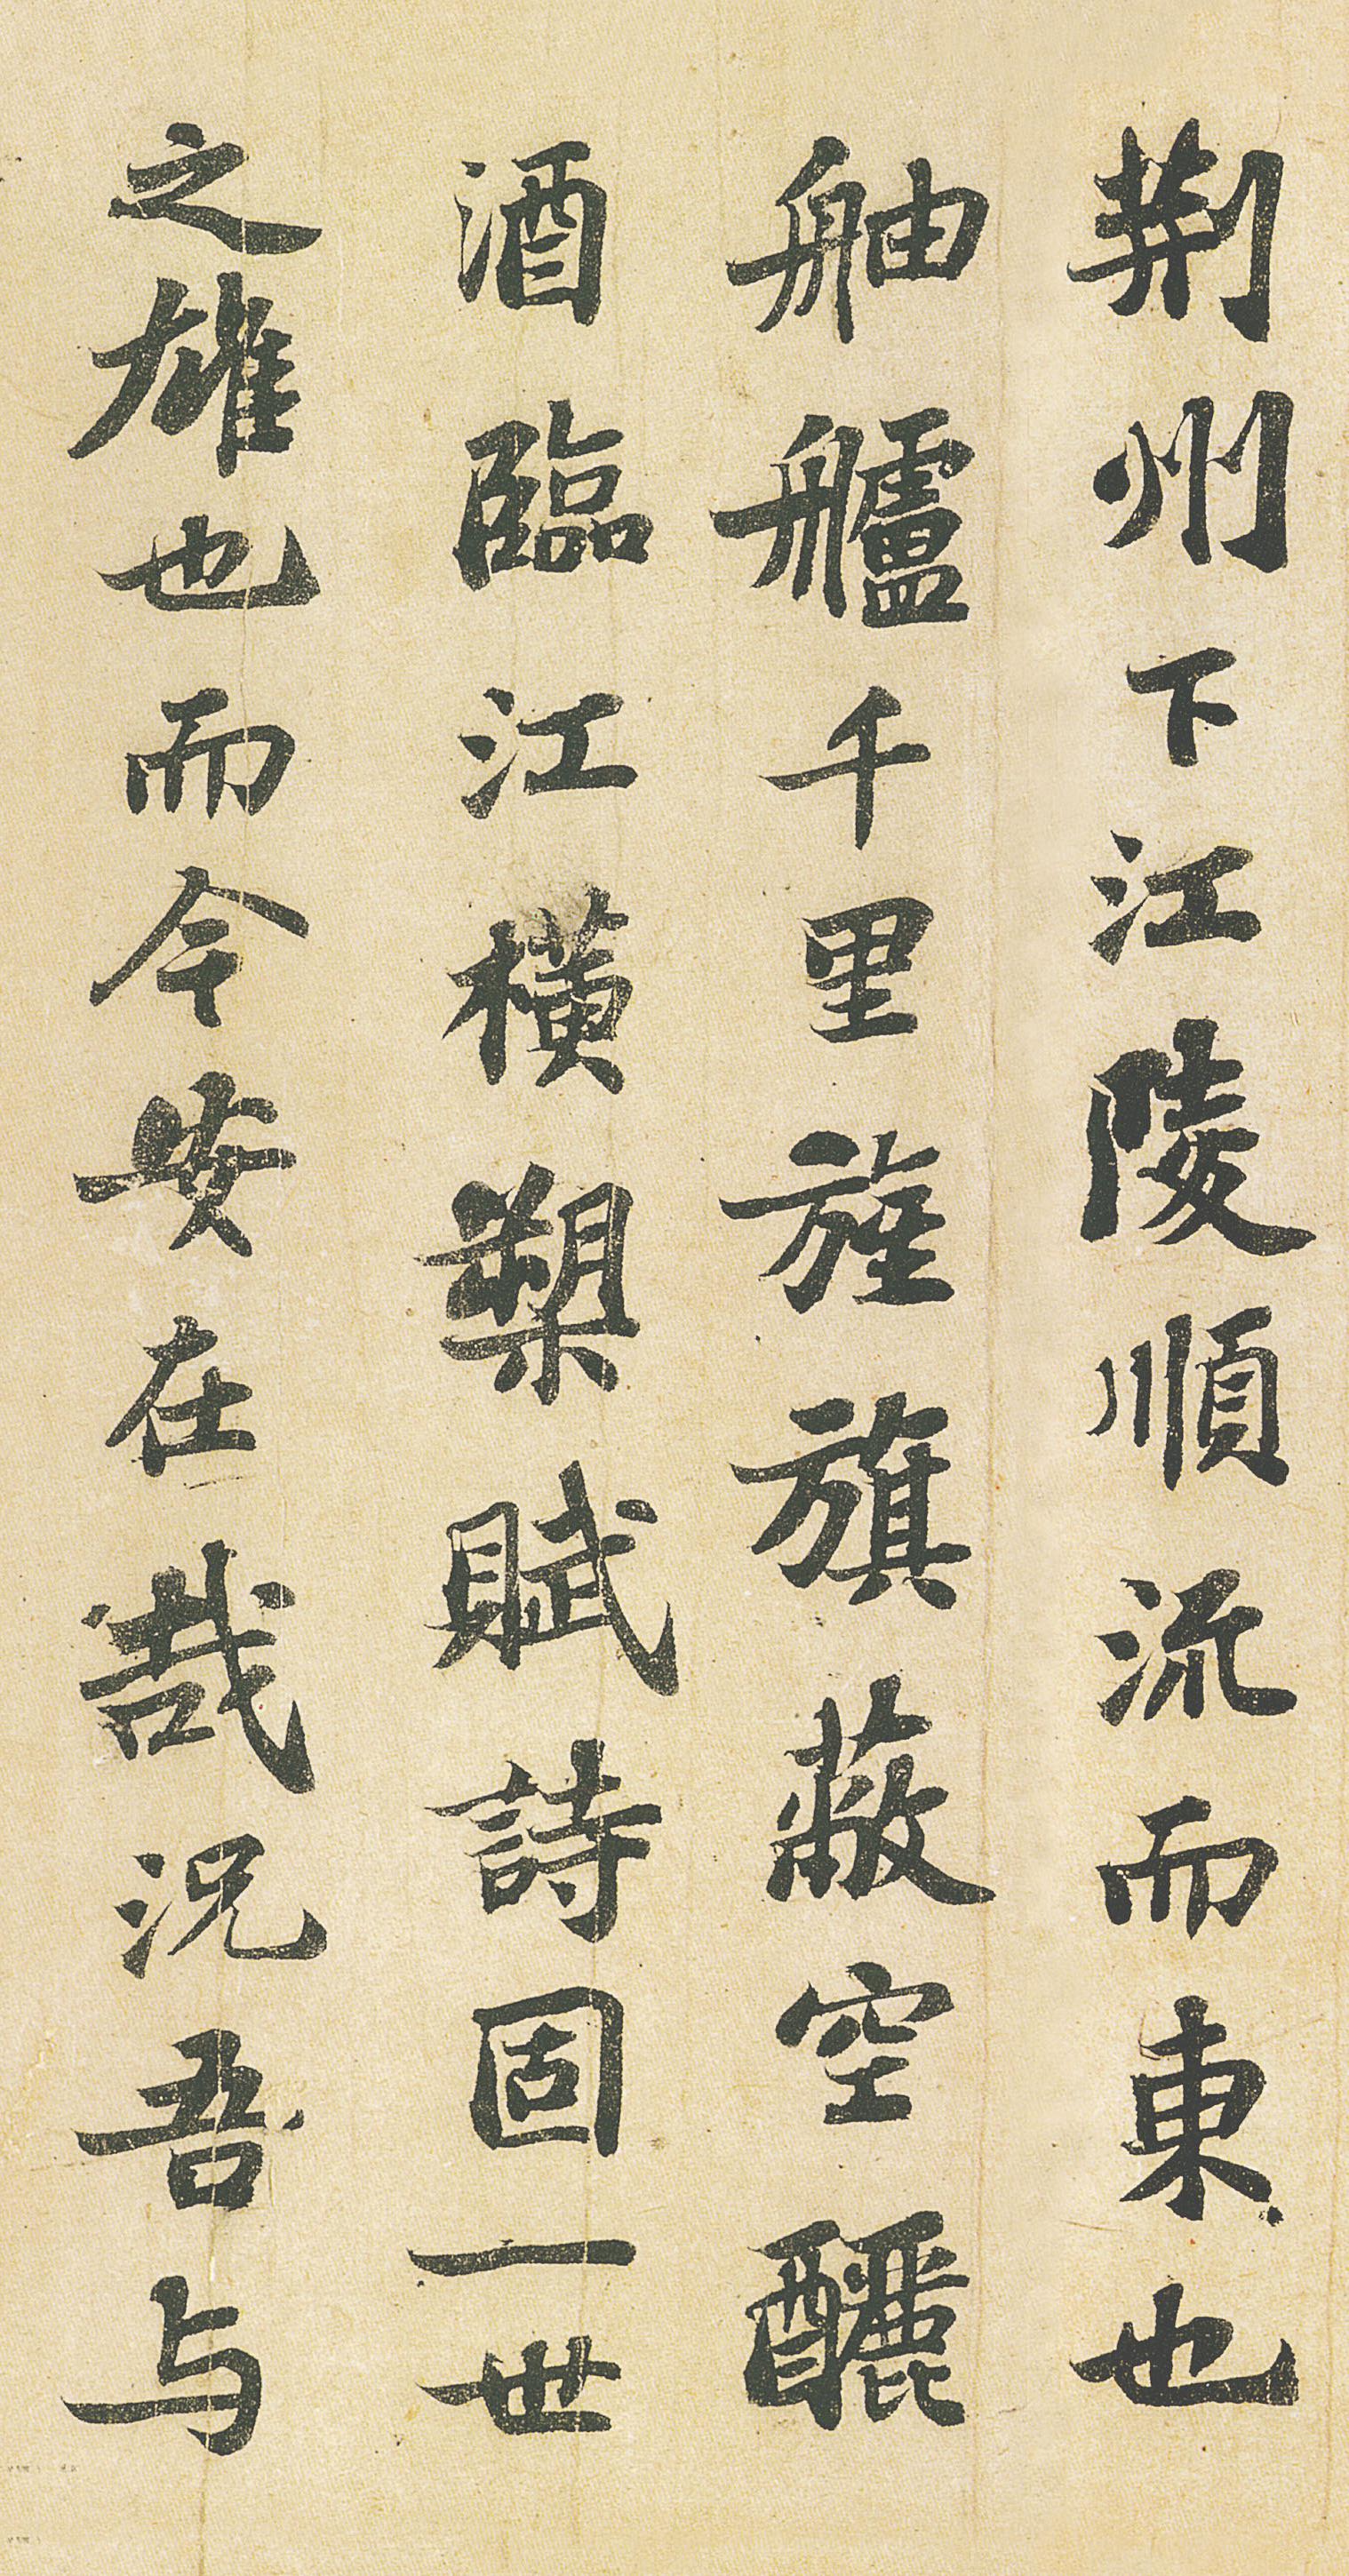 荆州下江陵順流而東也
舳艫千里旌旗蔽空釃
酒臨江橫槊賦詩固一世
之雄也而今安在哉況吾与